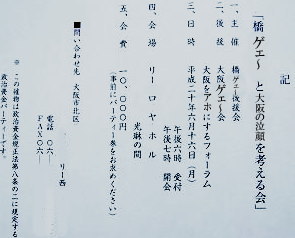 記
「橋ゲェ〜と大阪の泣顔を考える会」
一、主催 橋ゲェ〜後援会
二、後援 大阪ゲェ〜会
大阪をアホにするフォーラム
三、日時 平成二十年六月十六日(月)
午後六時 受付
午後七時 開会
四、会場 リーロヤホル
光琳の間
五、会費 一〇、〇〇〇円
(事前にパーティー券をお求めください)
■問い合わせ先 大阪市北区
リー西
電話 〇六―
FAX 〇六―
※ この催物は政治資金規正法第八条の二に規定する
政治資金パーティーです。